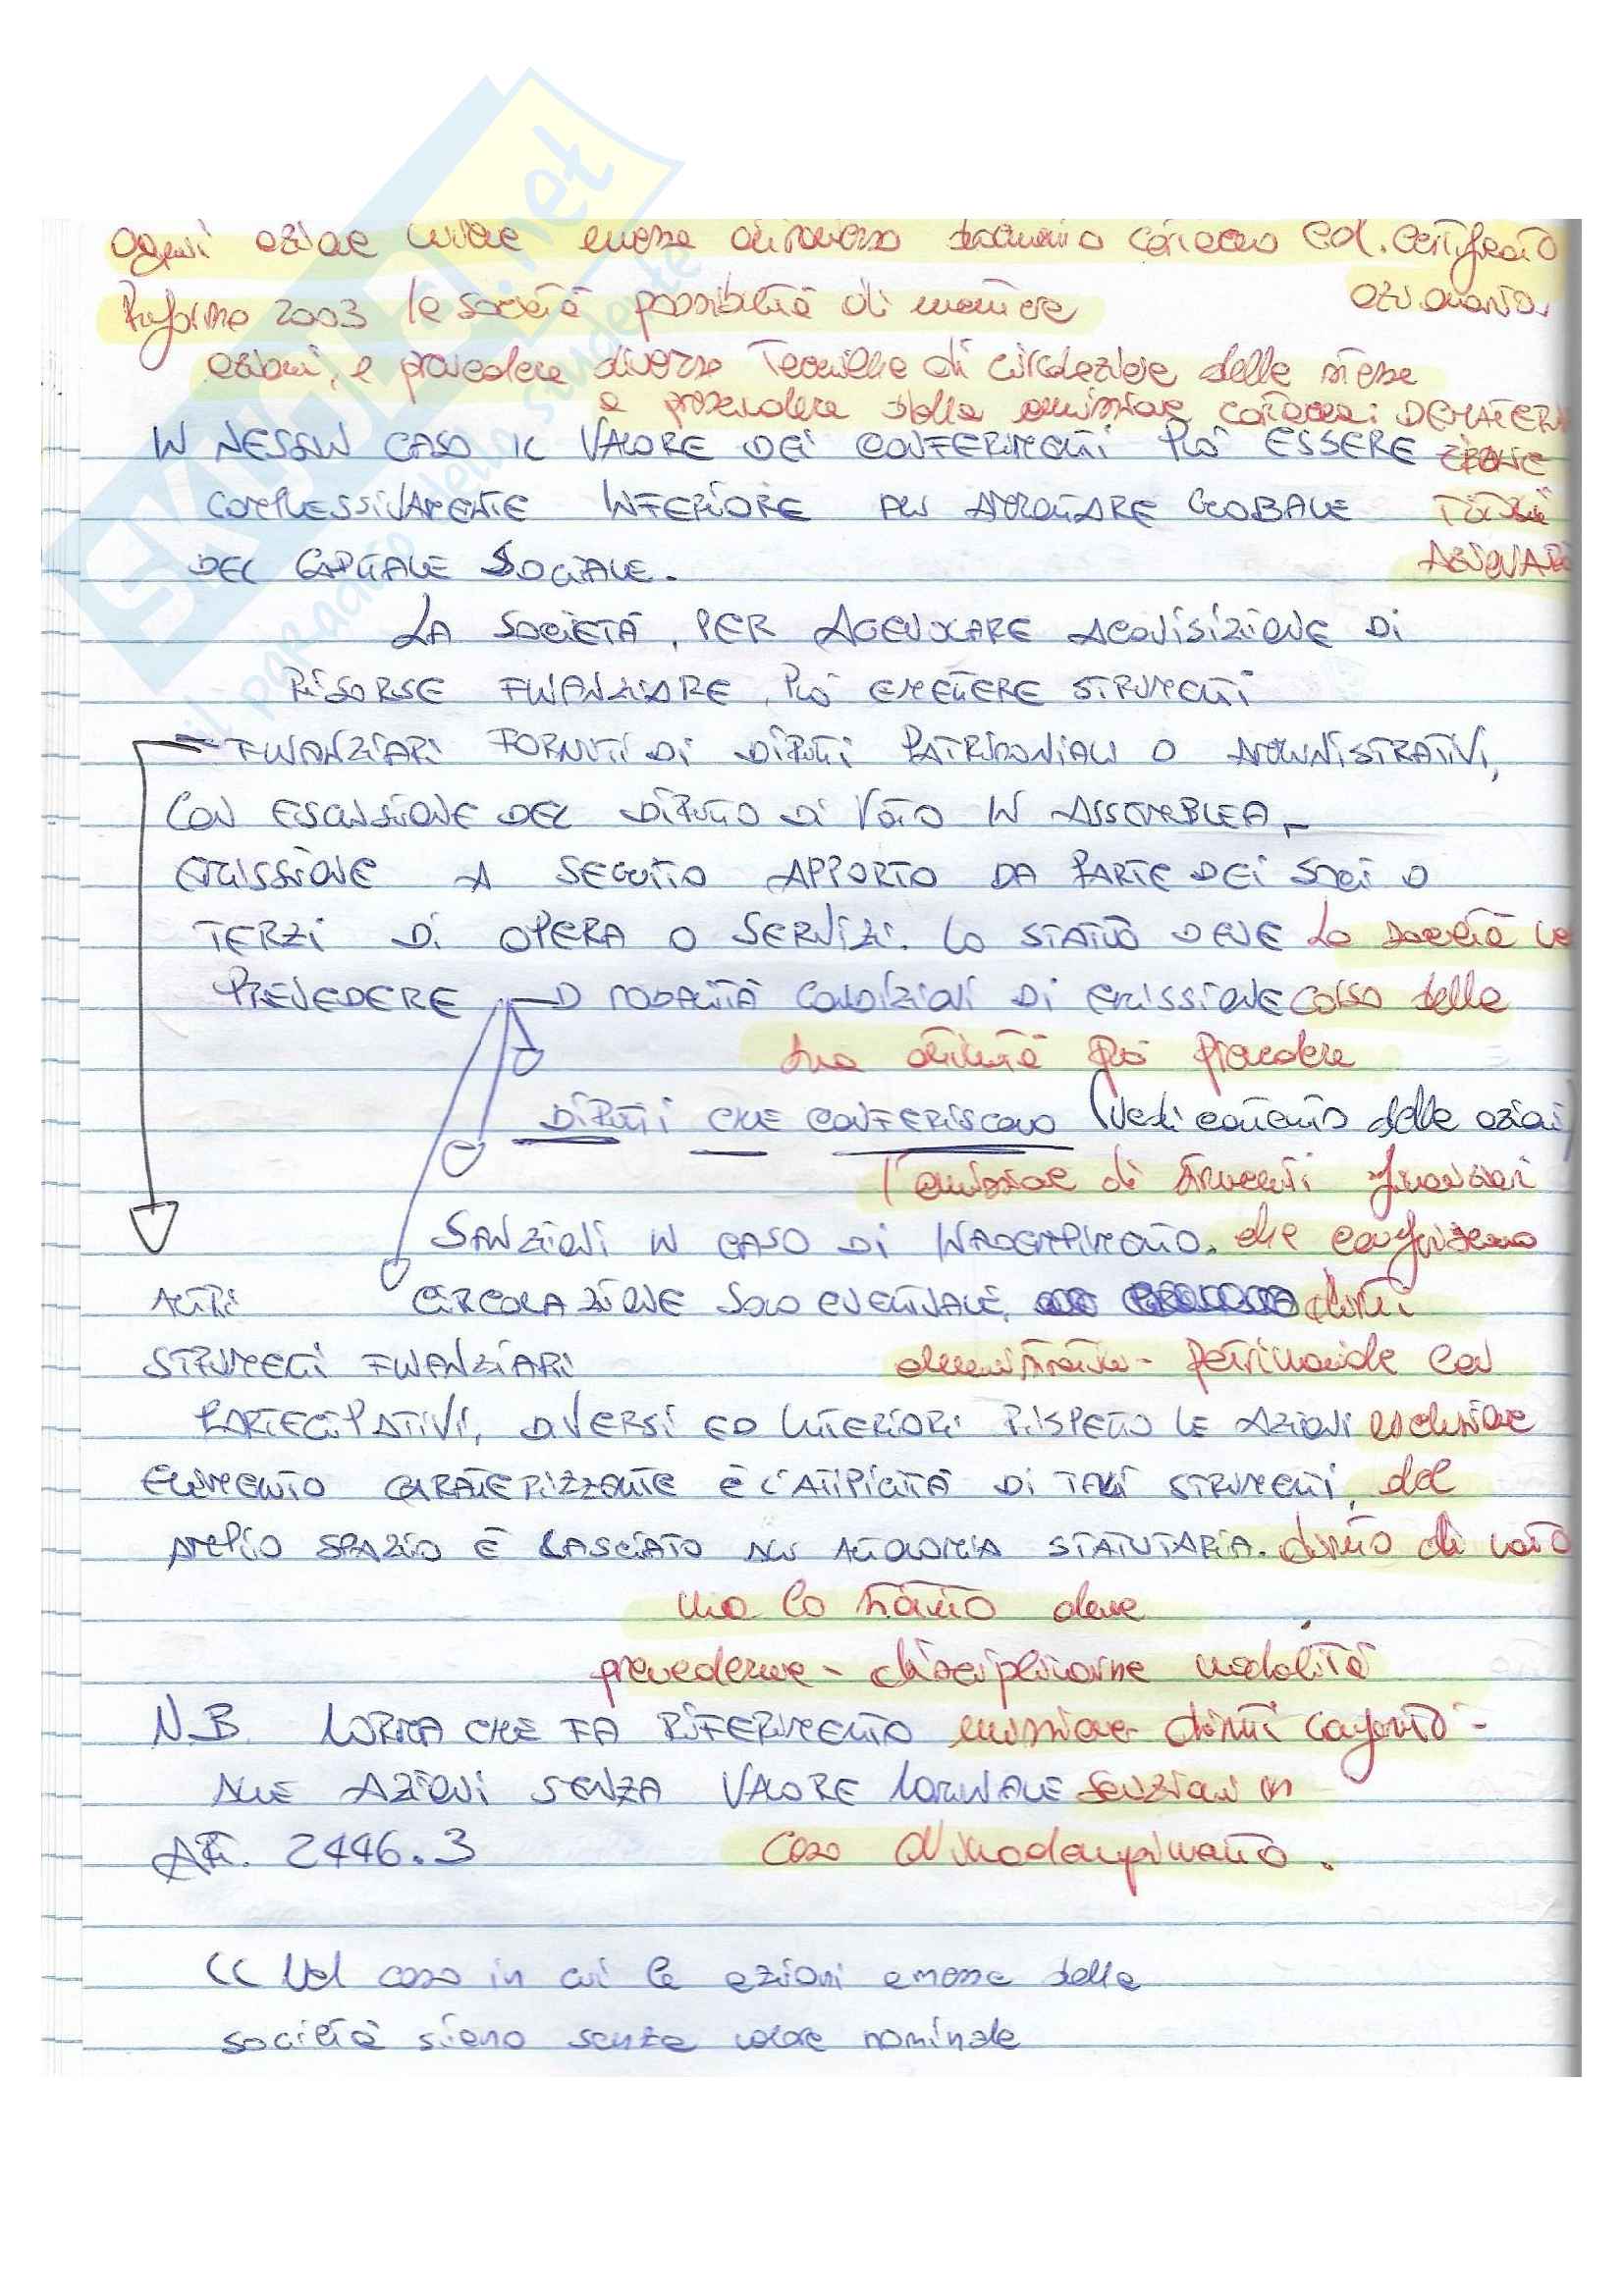 Ogni azione viene emessa attraverso documento cartaceo cd. certificato
azionario.
Riforma 2003 le società possibilità di emettere
azioni, e prevedere diverse tecniche di circolazione delle stesse
a prescindere dalla emissione cartacea: DEMATERIA
ZIONE
TITOLI
AZIONARI
IN NESSUN CASO IL VALORE DEI CONFERIMENTI PUÒ ESSERE
COMPLESSIVAMENTE INFERIORE ALL'AMMONTARE GLOBALE
DEL CAPITALE SOCIALE.
LA SOCIETÀ, PER AGEVOLARE ACQUISIZIONE DI
RISORSE FINANZIARE, PUÒ EMETTERE STRUMENTI
FINANZIARI FORNITI DI DIRITTI PATRIMONIALI O AMMINISTRATIVI,
CON ESCLUSIONE DEL DIRITTO DI VOTO IN ASSEMBLEA.
EMISSIONE A SEGUITO APPORTO DA PARTE DEI SOCI O
TERZI DI OPERA O SERVIZI. LO STATUTO DEVE La società nel
PREVEDERE MODALITÀ CONDIZIONI DI EMISSIONE corso della
sua attività può prevedere
DIRITTI CHE CONFERISCONO (vedi contenuto delle azioni)
l'emissione di strumenti finanziari
SANZIONI IN CASO DI INADEMPIMENTO. che conferiscono
ALTRI CIRCOLAZIONE SOLO EVENTUALE. diritti
STRUMENTI FINANZIARI amministrativi - patrimoniale con
PARTECIPATIVI, DIVERSI ED ULTERIORI RISPETTO LE AZIONI esclusione
ELEMENTO CARATTERIZZANTE È L'ATIPICITÀ DI TALI STRUMENTI, del
AMPIO SPAZIO È LASCIATO ALL'AUTONOMIA STATUTARIA. diritto di voto
ma lo statuto deve
prevederne - disciplinarne modalità
N.B. NORMA CHE FA RIFERIMENTO emissione - diritti conferiti -
ALLE AZIONI SENZA VALORE NOMINALE sanzioni in
ART. 2446.3 caso di inadempimento.
<< Nel caso in cui le azioni emesse dalla
società siano senza valore nominale
SKUOLA.net
il paradiso dello studente